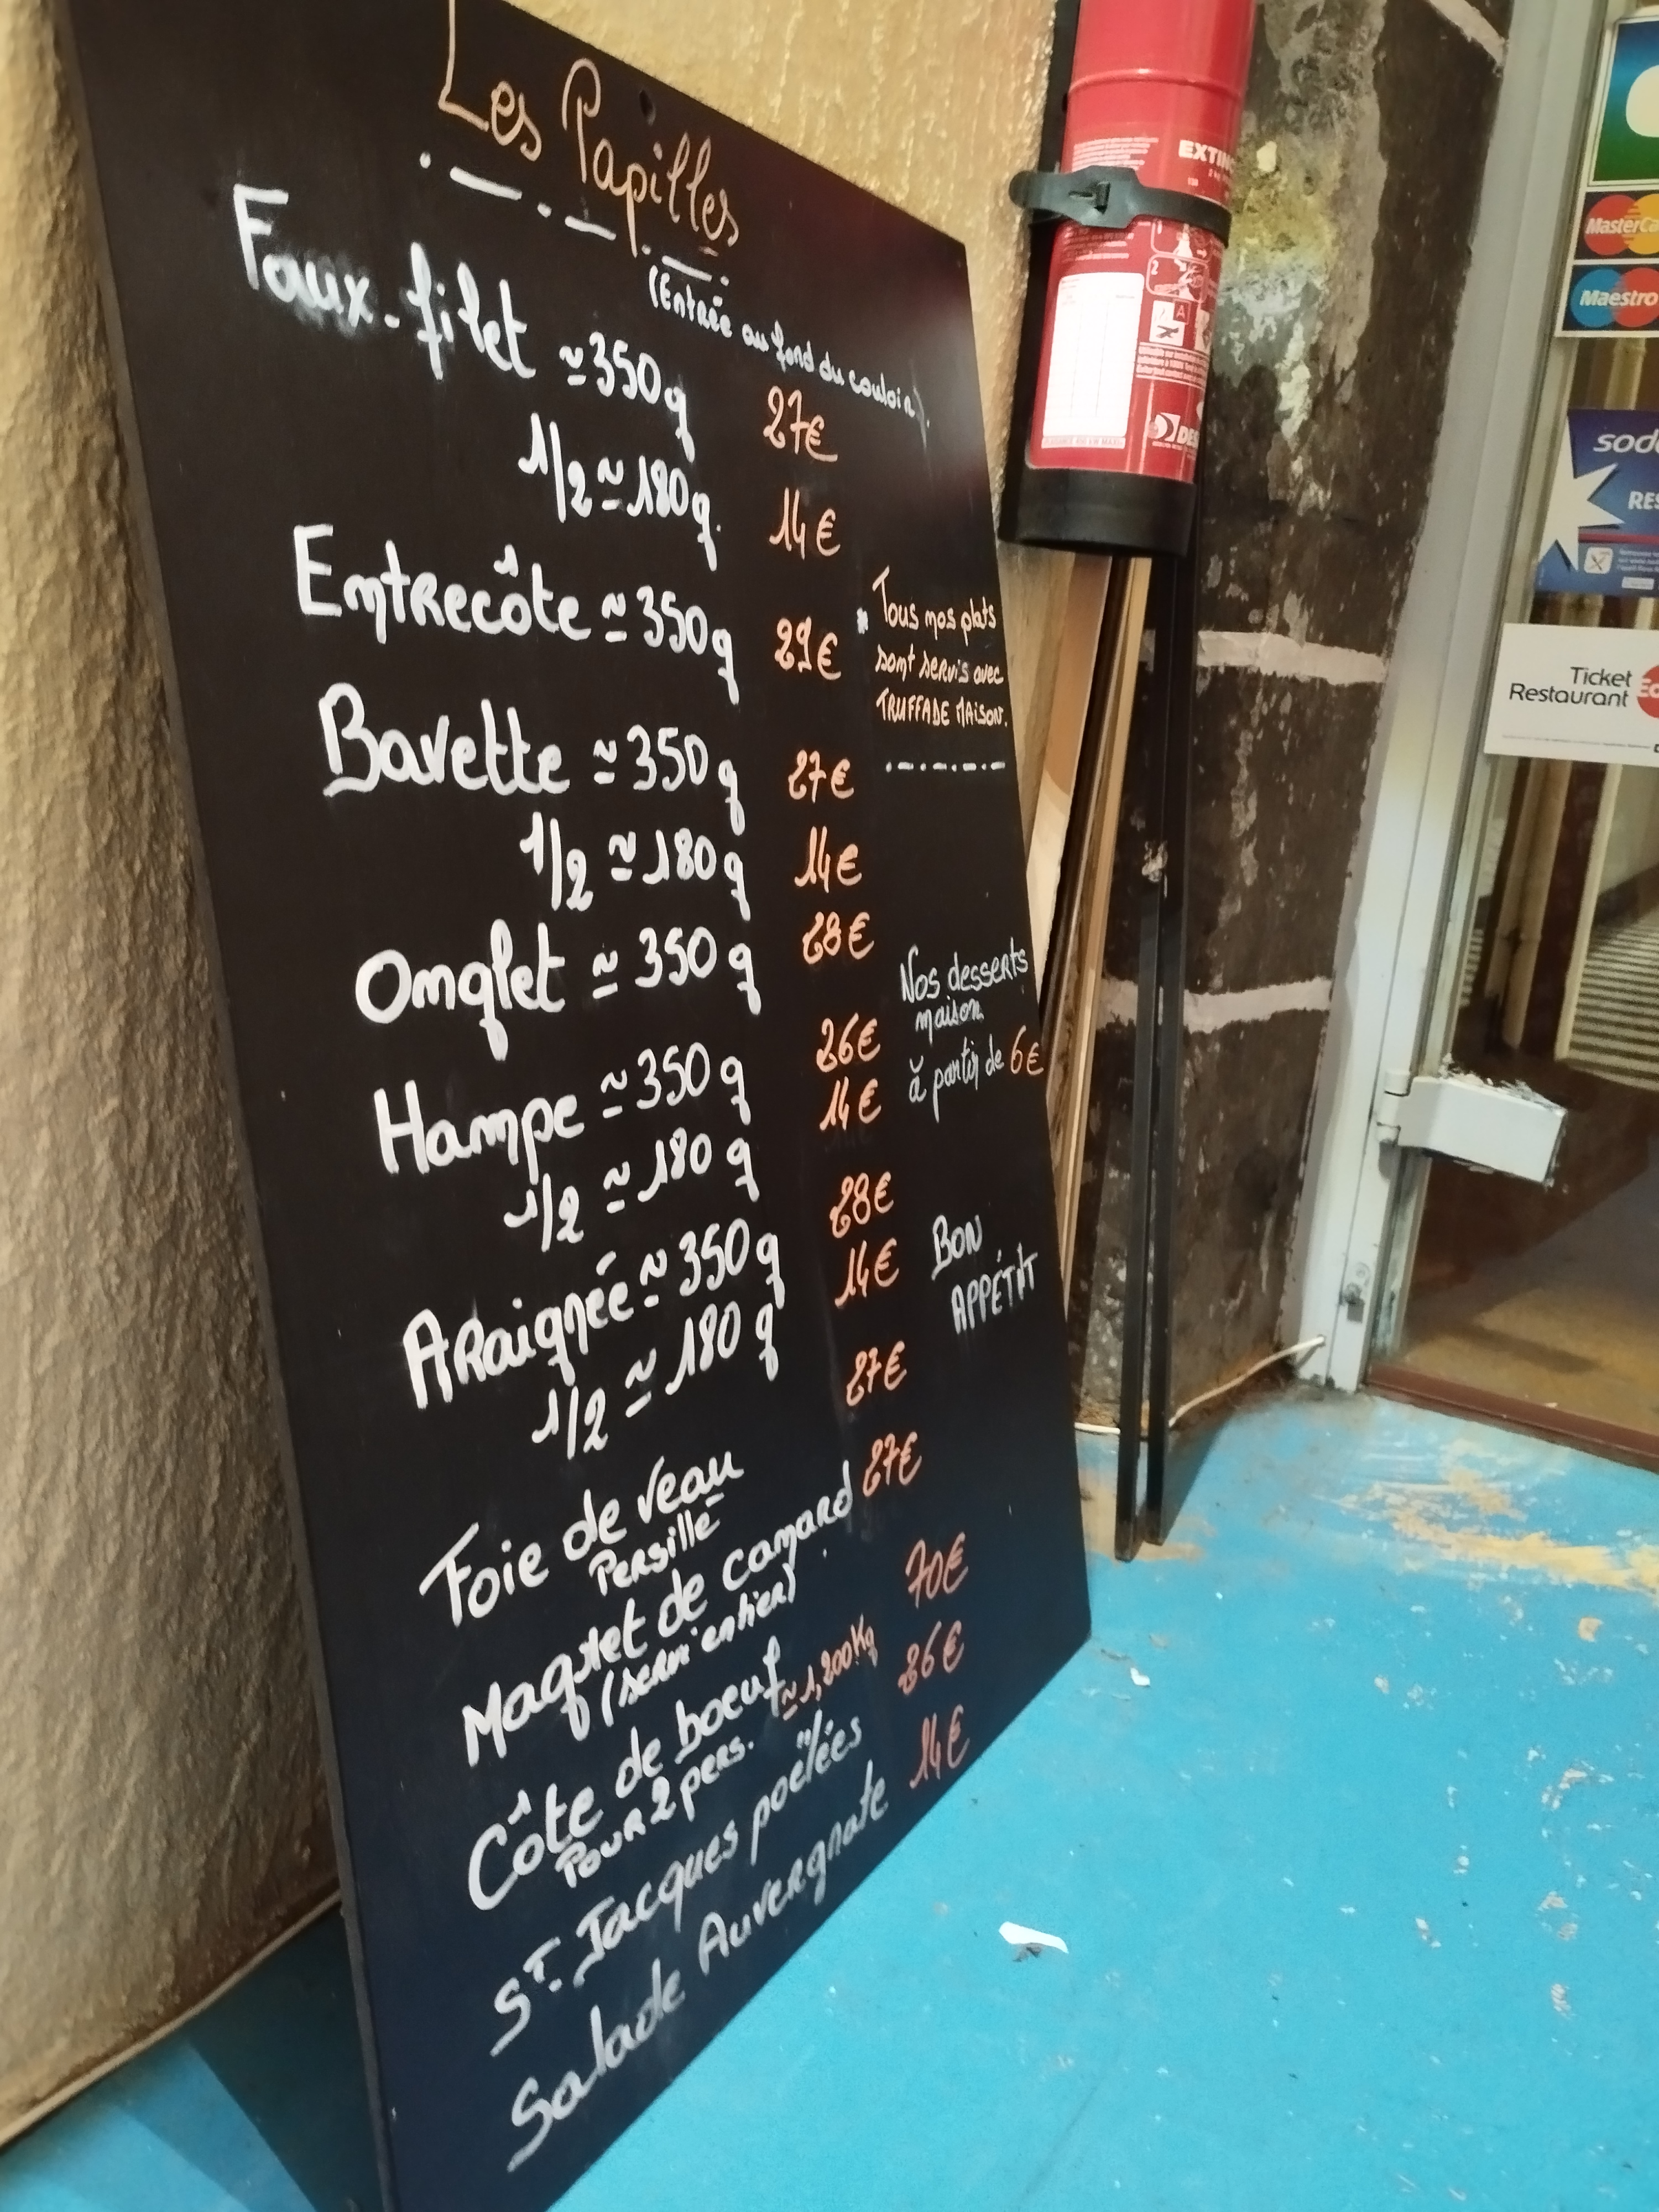 Les Papilles
(Entrée au fond du couloir).
Faux-filet ≃ 350g 27€
1/2 ≃ 180g. 14€
Entrecôte ≃ 350g 29€
Bavette ≃ 350g 27€
1/2 ≃ 180g 14€
Onglet ≃ 350g 28€
Hampe ≃ 350g 26€
1/2 ≃ 180g 14€
Araignée ≃ 350g 28€
1/2 ≃ 180g 14€
Foie de veau 27€
Persillé
Magret de canard 27€
(servi entier)
Côte de boeuf ≃ 1,200Kg 70€
Pour 2 pers.
St. Jacques poêlées 26€
Salade Auvergnate 14€
* Tous nos plats
sont servis avec
TRUFFADE MAISON.
Nos desserts
maison
à partir de 6€
BON
APPÉTIT
EXTIN
2
A
DES
MasterCa
Maestro
sode
RES
Ticket
Restaurant